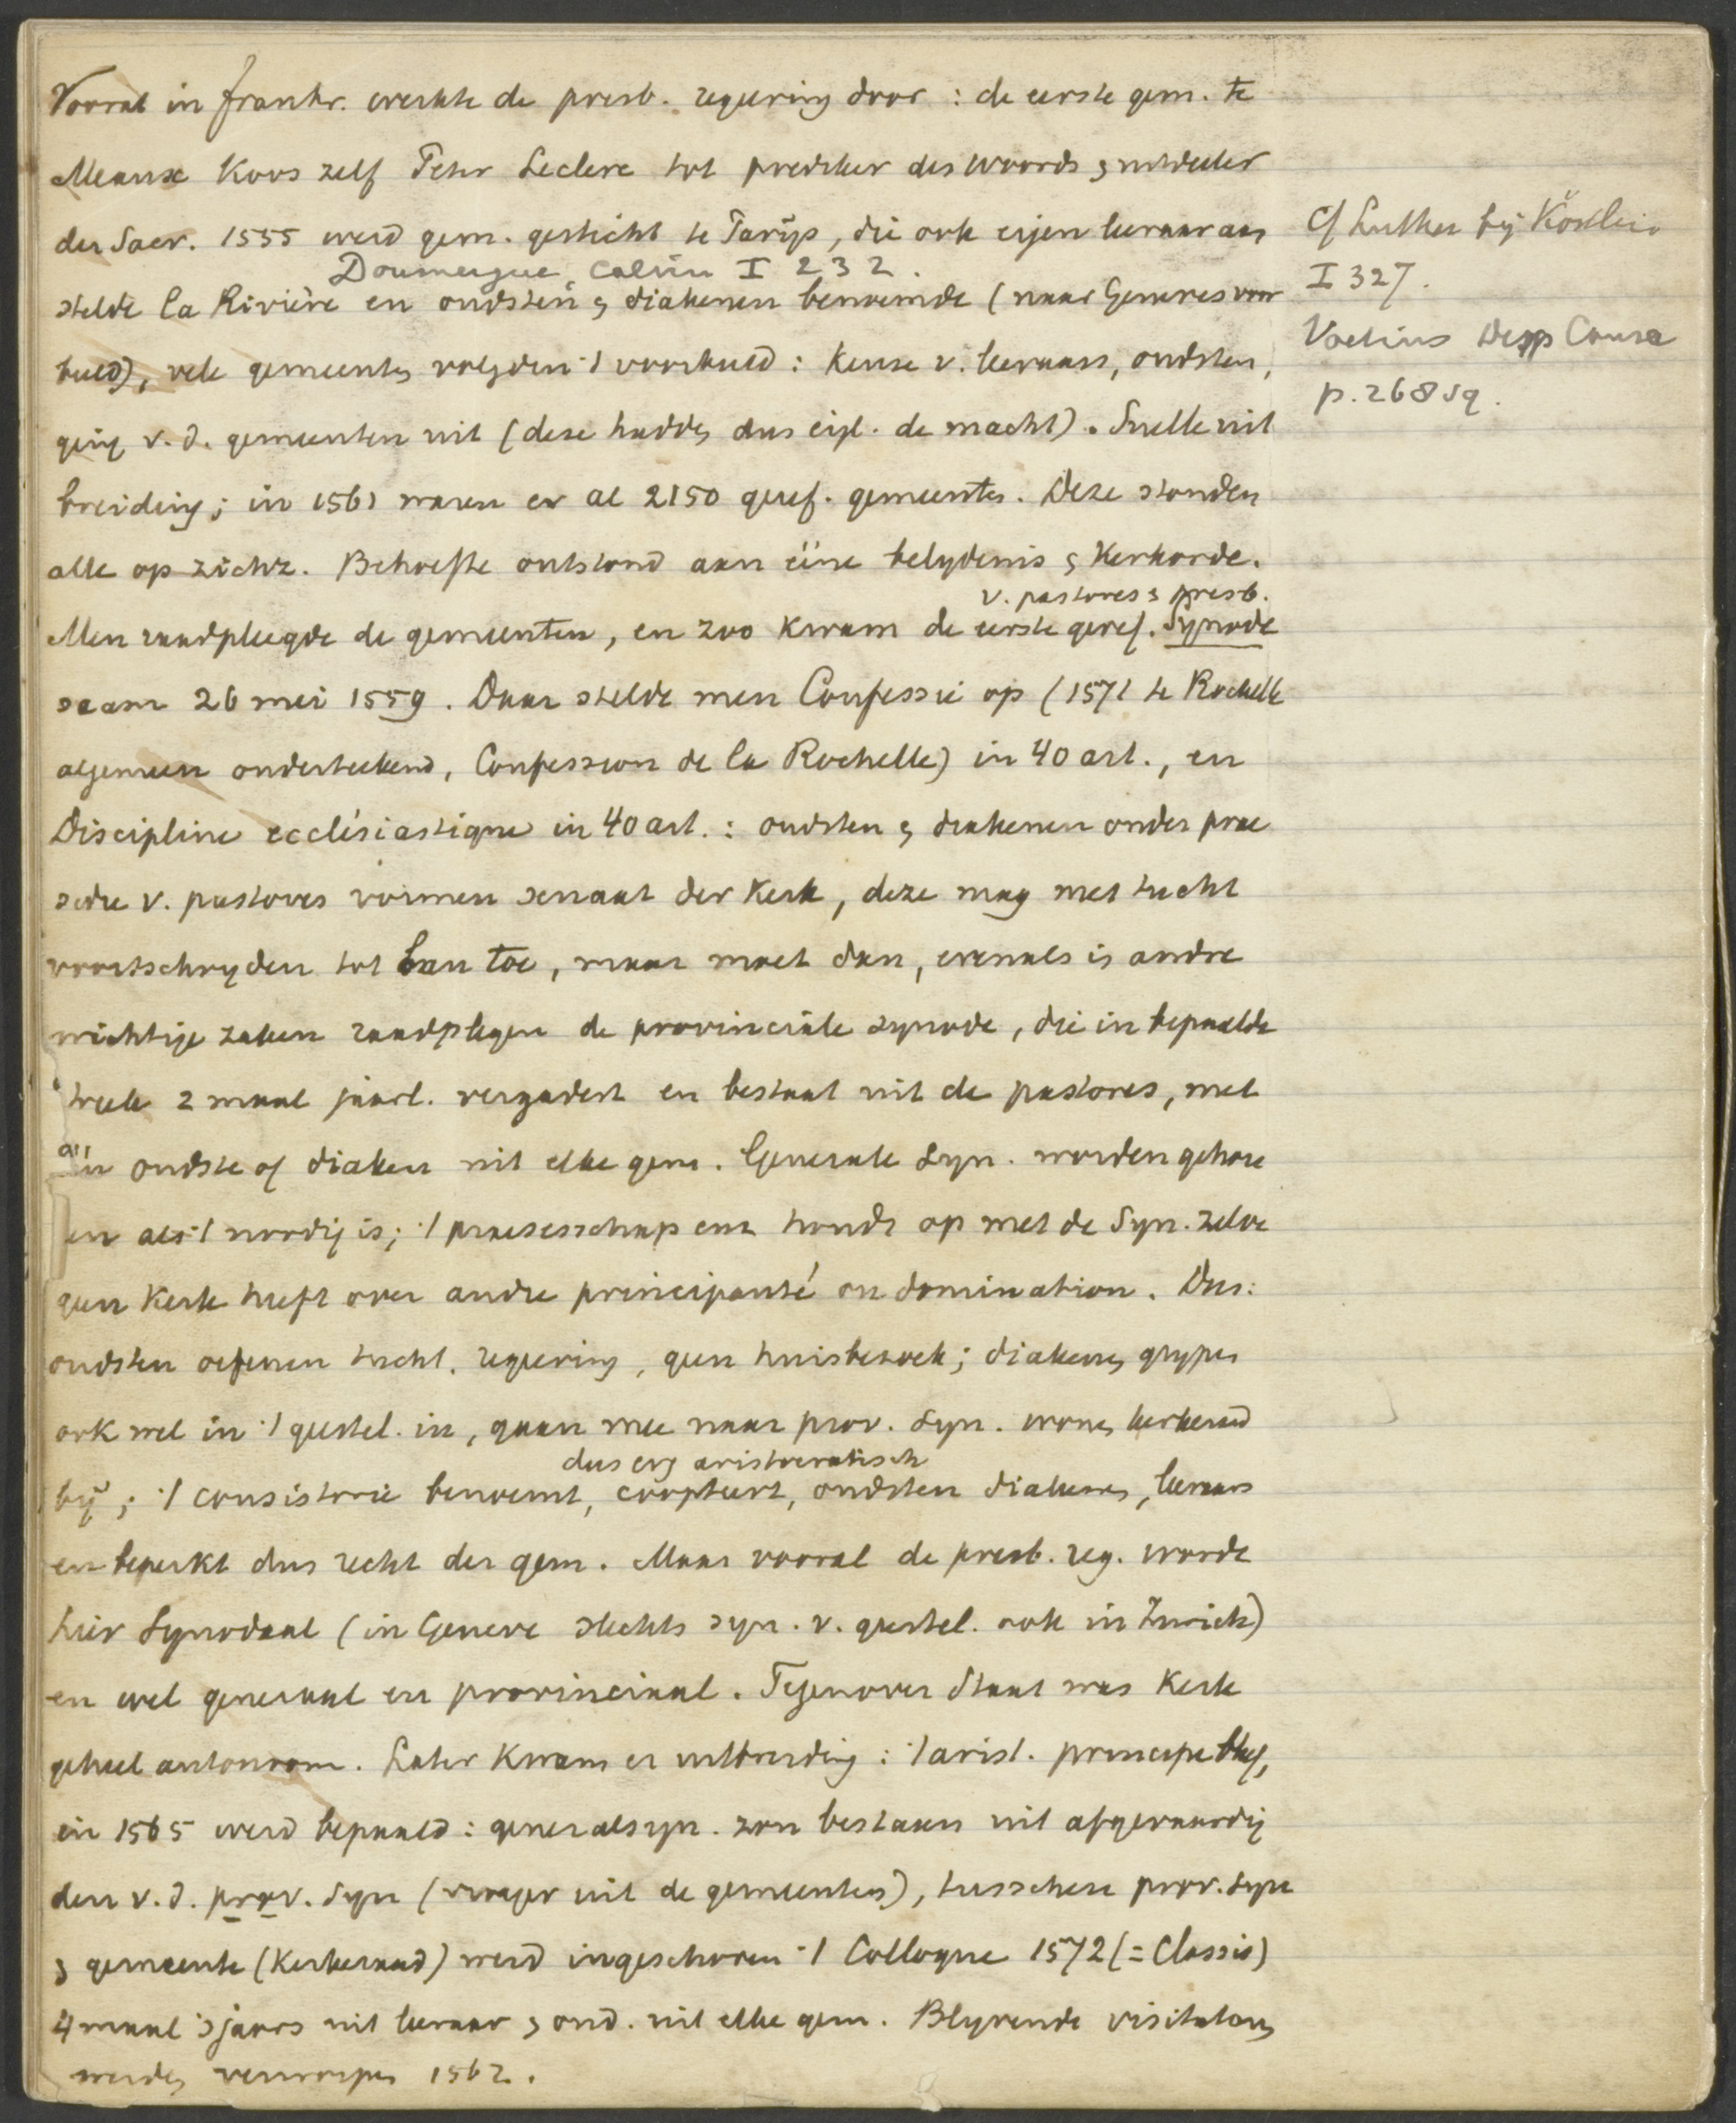 Vooral in frankr. werkte de presb. regeering door : de eerste gem. te
Meaux koos zelf Peter Leclerc tot prediker des woords & uitdeeler
der Sacr. 1555 werd gem. gesticht te Parijs, die ook eigen leeraar aan
Doumergue, Calvin I 232.
stelde la Rivière en oudsten & diakenen benoemde (naar Geneves voor
beeld), vele gemeenten volgden 't voorbeeld : keuze v. leeraars, oudsten,
ging v.d. gemeenten uit (deze hadden dus eigl. de macht). Snelle uit
breiding; in 1561 waren er al 2150 geref. gemeenten. Deze stonden
alle op zichz. Behoefte ontstond aan eéne belydenis & Kerkorde.
v. pastores & presb.
Men raadpleegde de gemeenten, en zoo kwam de eerste geref. Synode
saam 26 mei 1559. Daar stelde men Confessie op (1571 te Rochelle
algemeen onderteekend, Confession de la Rochelle) in 40 art., en
Discipline ecclésiastique in 40 art. : oudsten & diakenen onder prae
sidie v. pastores vormen senaat der Kerk, deze mag met tucht
voortschryden tot ban toe, maar moet dan, evenals in andre
wichtige zaken raadplegen de provinciale synode, die in bepaalde
2 maal jaarl. vergadert en bestaat uit de pastores, met
één oudste of diaken uit elke gem. Generale Syn. worden gehou
en als 't noodig is; 't praesesschap enz houdt op met de Syn. zelve
geen Kerk heeft over andre principauté ou domination. Dus:
oudsten oefenen tucht, regeering, geen huisbezoek; diakenen grypen
ook wel in 't geestel. in, gaan mee naar prov. Syn. wonen kerkeraad
bij; 't consistorie benoemt, coopteert, oudsten diakenen, leeraars
dus erg aristocratisch
en beperkt dus recht der gem. Maar vooral de presb. reg. worde
hier Synodaal (in Geneve slechts syn. v. geestel. ook in Zurich)
en wel generaal en provinciaal. Tegenover Staat was Kerk
geheel autonoom. Later kwam er uitbreiding : 't arist. principe bleef,
in 1565 werd bepaald : generalsyn. zou bestaan uit afgevaardig
den v.d. prov. Syn (vroeger uit de gemeenten), tusschen prov. Syn
& gemeente (Kerkeraad) werd ingeschoven 't Colloque 1572 (= Classis)
4 maal 's jaars uit leeraar & oud. uit elke gem. Blyvende visitatoren
werden verworpen 1562.
Cf Luther bij Köstlin
I 327.
Voetius Desp Causa
p. 268 sq.